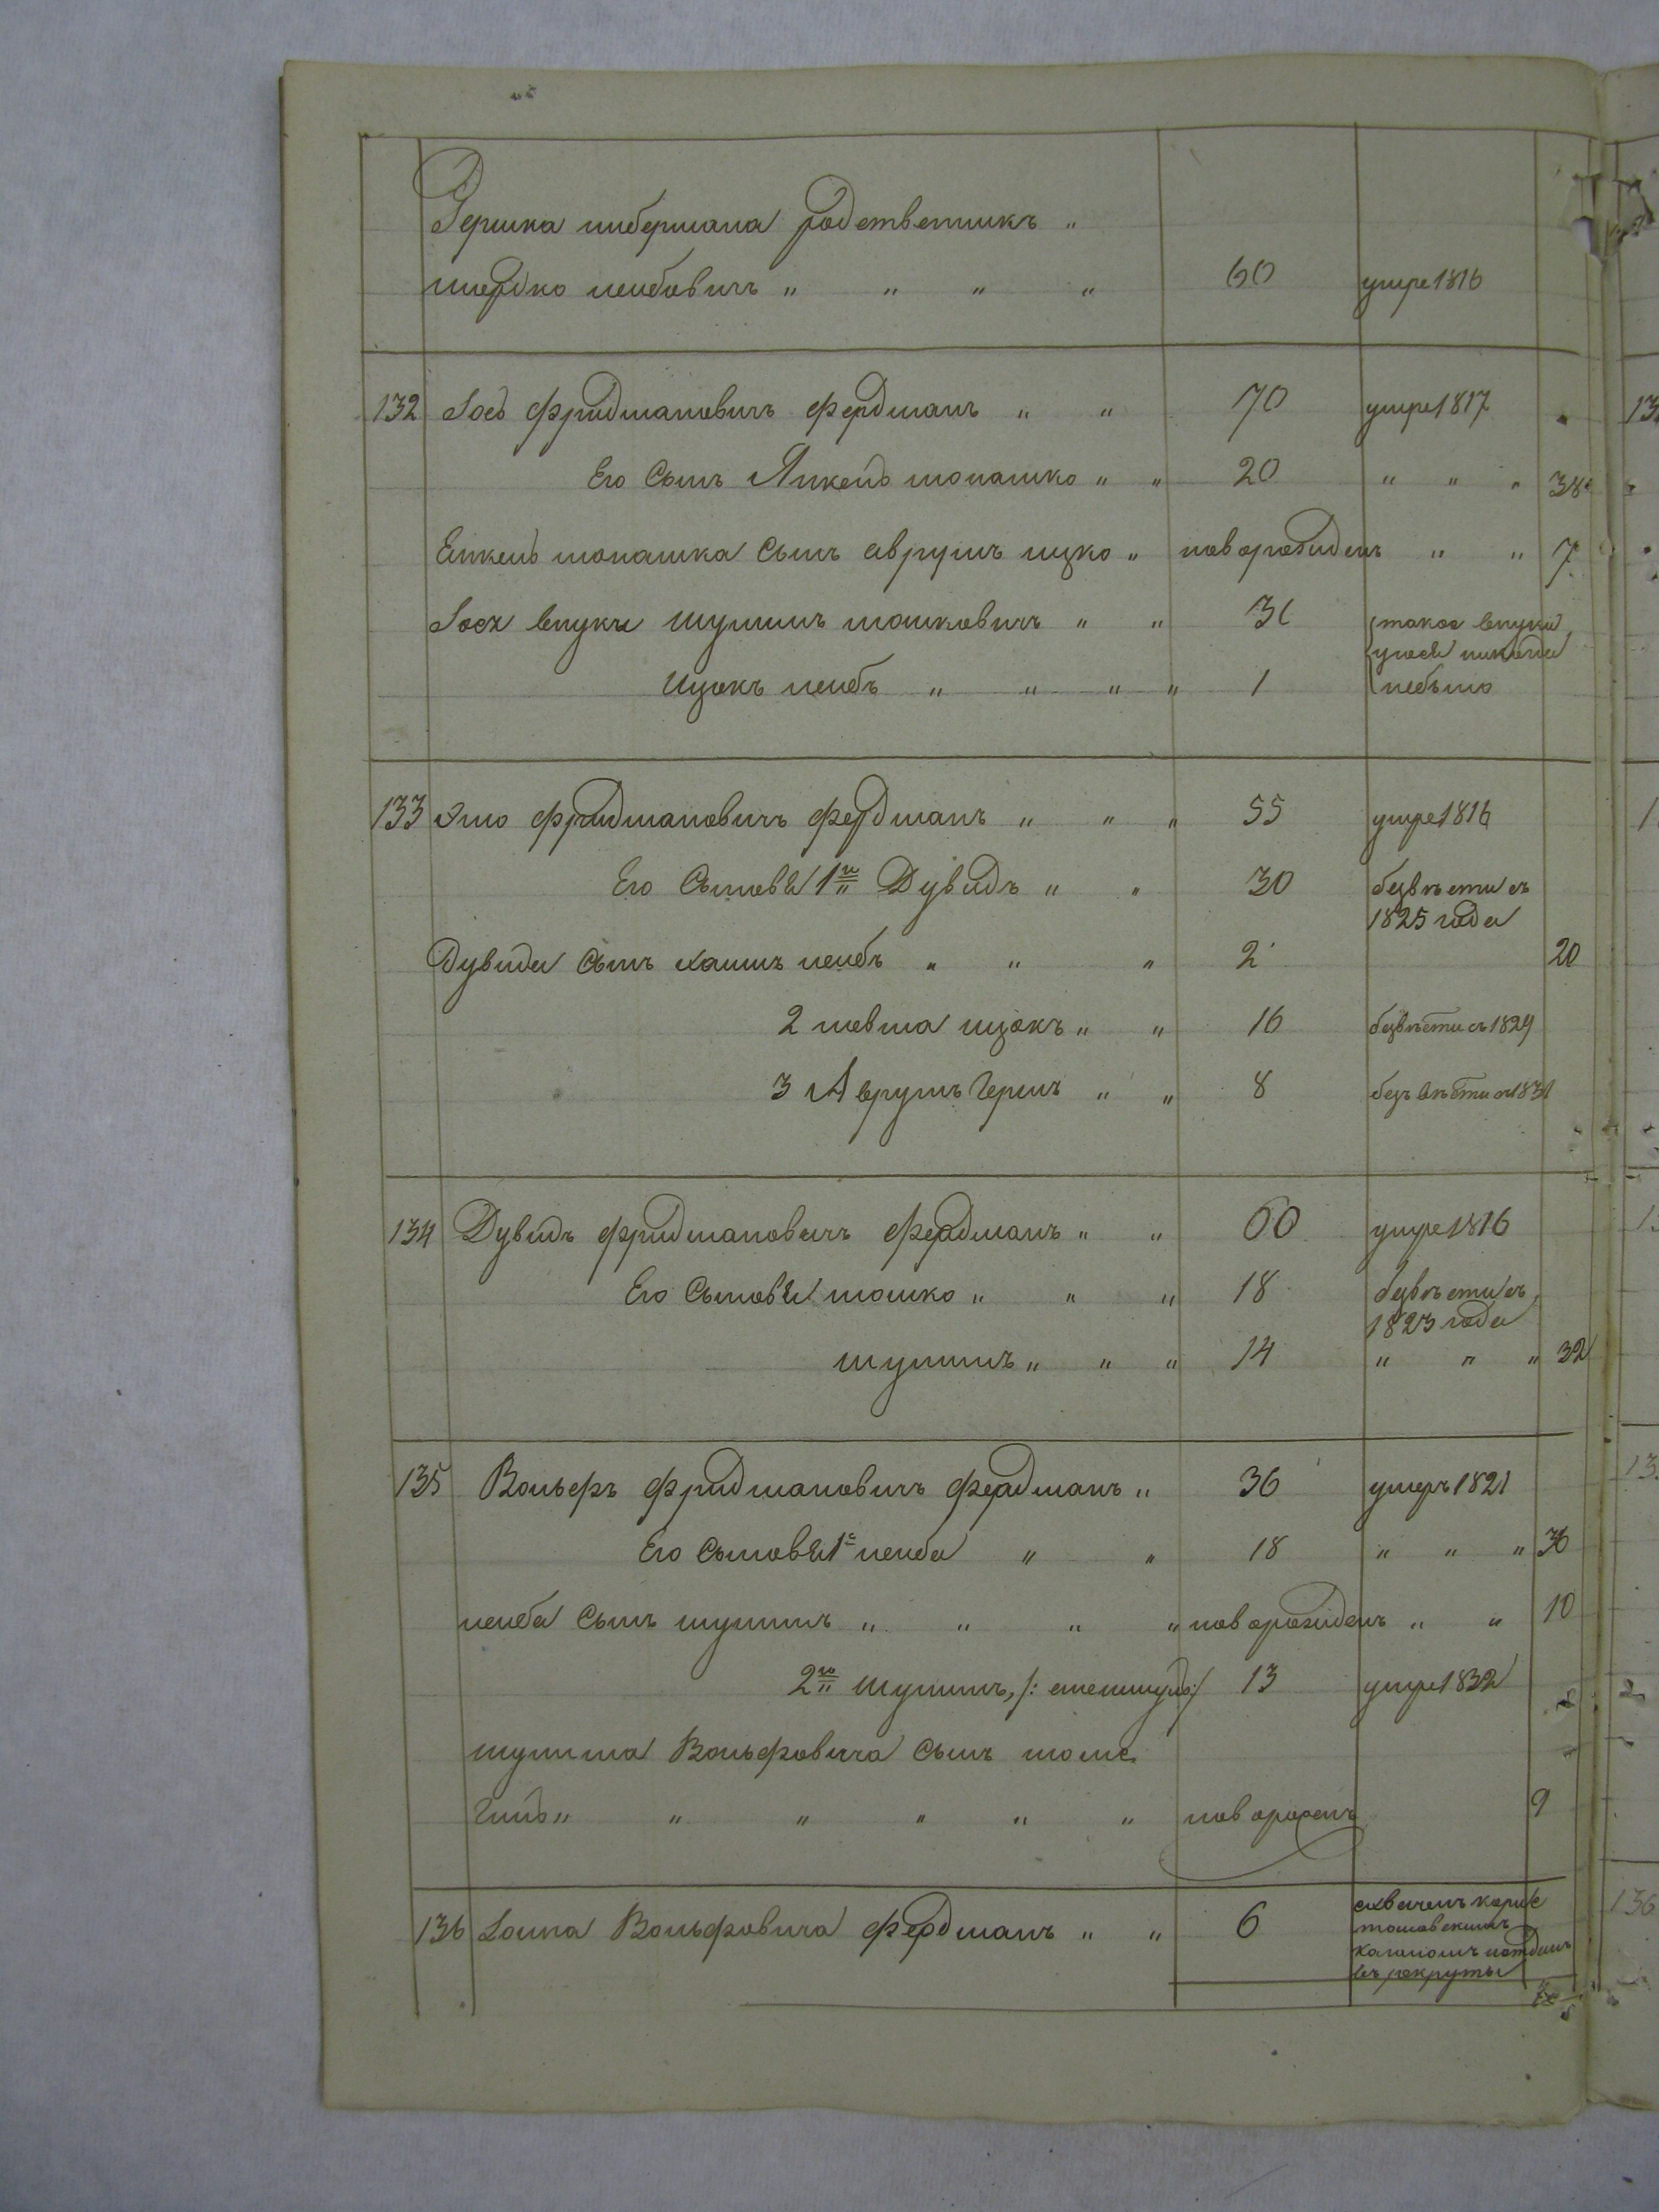 Гершка либермана родственникъ "
шердко лейбовичъ " " " " 60 умре 1816
132 Іосъ фридмановичъ фердманъ " " 70 умре 1817
Его Сынъ Янкель монашко " " 20 " " " 38
Енкель монашка Сынъ аврумъ ицко " новорожденъ " " 7
Іося внуки шулимъ мошковичъ " " 31 такое внуки
уіося никогда
Ицокъ лейбъ " " " " 1 небыло
133 Элю фридмановичъ фердманъ " " " 55 умре 1816
Его Сыновья 1й Дувидъ " " 30 безвѣсти съ
1825 года
Дувида Сынъ хаимъ лейбъ " " " 2 20
2 шевма ицокъ " " 16 безвѣсти съ 1829
3 Аврумъ Гершъ " " 8 безъ вѣсти съ 1831
134 Дувидъ фридмановичъ фердманъ " " 60 умре 1816
Его Сыновья мошко " " " 18 безвѣсти съ
1823 года
шулимъ " " " 14 " " " 32
135 Вольфъ фридмановичъ фердманъ " 36 умеръ 1821
Его Сыновья 1й лейба " " 18 " " " 36
лейба Сынъ шулимъ " " " " новорожденъ " " 10
2й шулимъ, /: :/ 13 умре 1832
шулима Вольфовича Сынъ
" " " " " " новорожденъ 9
136 Вольфовича фердманъ " " 6 схваченъ
Кагаломъ иотданъ
въ рекруты